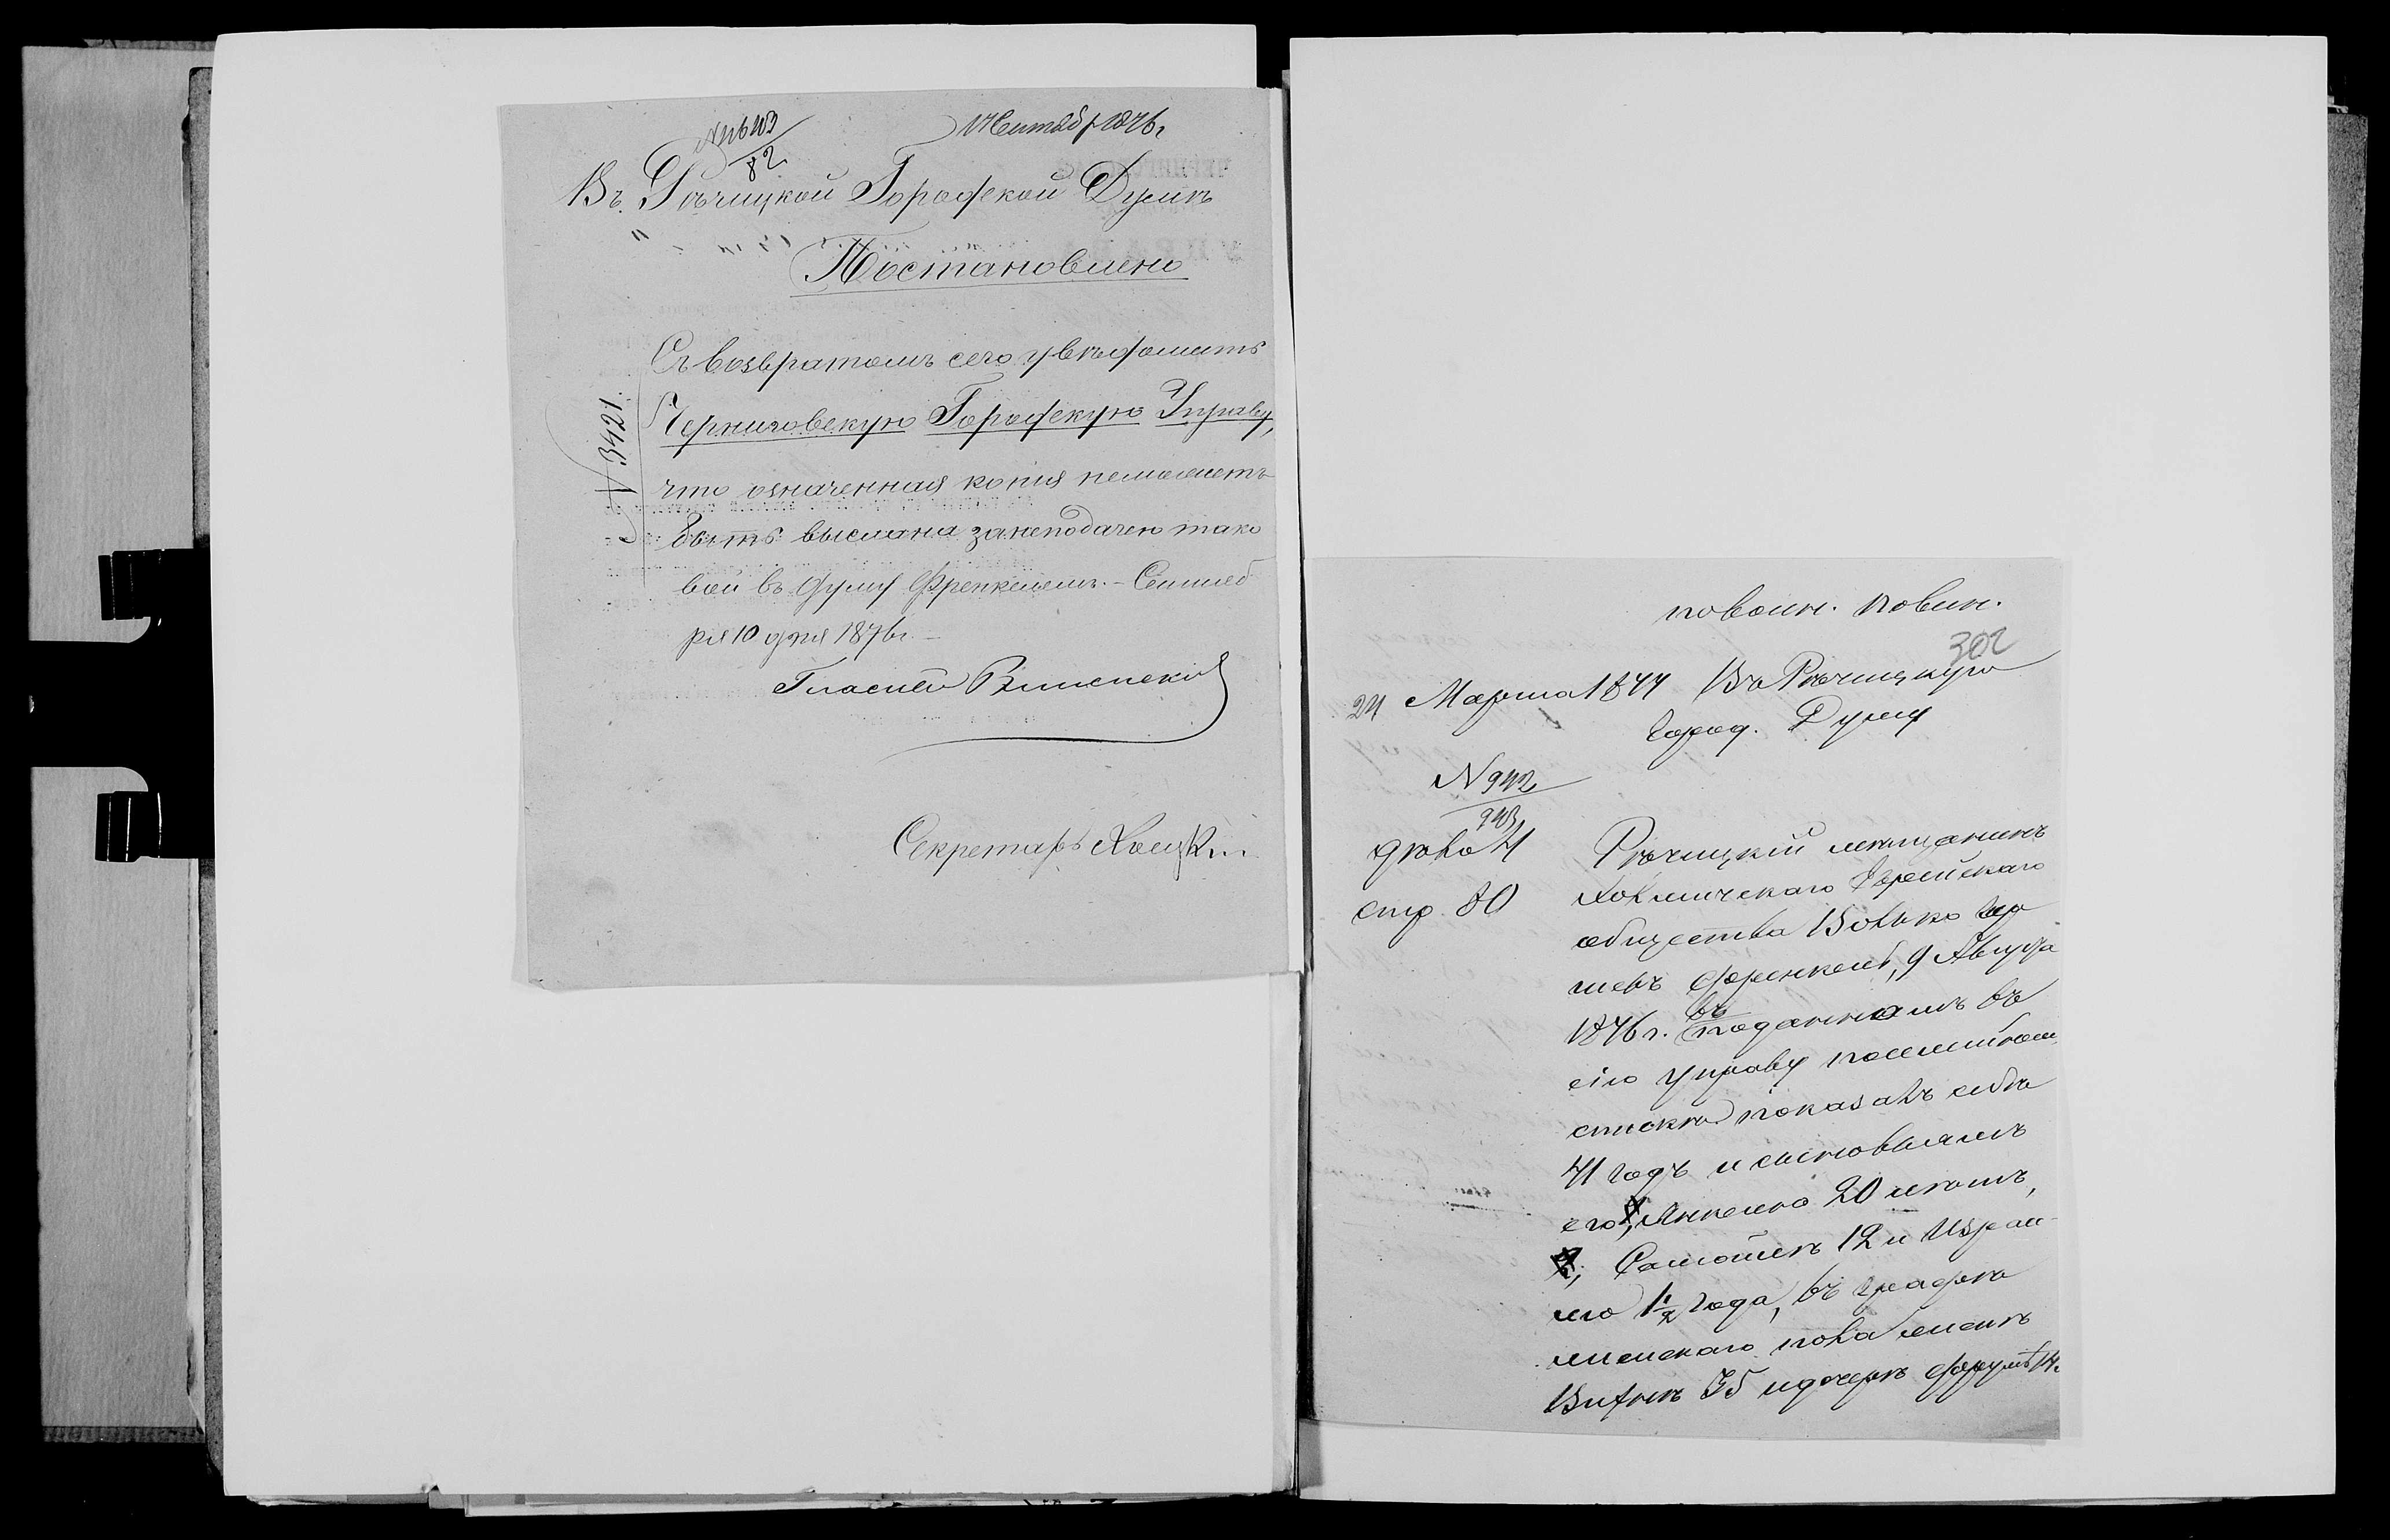 17 Сентяб 1876г
82
Въ Рѣчицкой Городской Думѣ
Постановлено
Съ возвратомъ сего увѣдомить
Черниговскую Городскую Управу,
что означенная копия неможетъ
быть выслана занеподачею тако
вой въ думу Френкелемъ. – Сентяб
ря 10 дня 1876г. –
Гласный
Секретарь
№ 3421.
повоин. повин.
302
24 Марта 1877 Въ Рѣчицкую
город. Думу
№ 942
943
дѣло 4
стр. 80
Рѣчицкій мѣщанинъ
Холмичскаго Еврейскаго
общества Волько Гер
шевъ Френкель, 9 Августа
1876 г. въ поданномъ въ
сію управу посемейном
спискѣ показалъ себѣ
41 годъ и сыновьямъ
его, Янкелю 20 лѣтъ,
Самойлѣ 12 и Израи
лю 1½ года, въ графѣ
женскаго пола женѣ
35 и дочерѣ Фрумѣ 14.